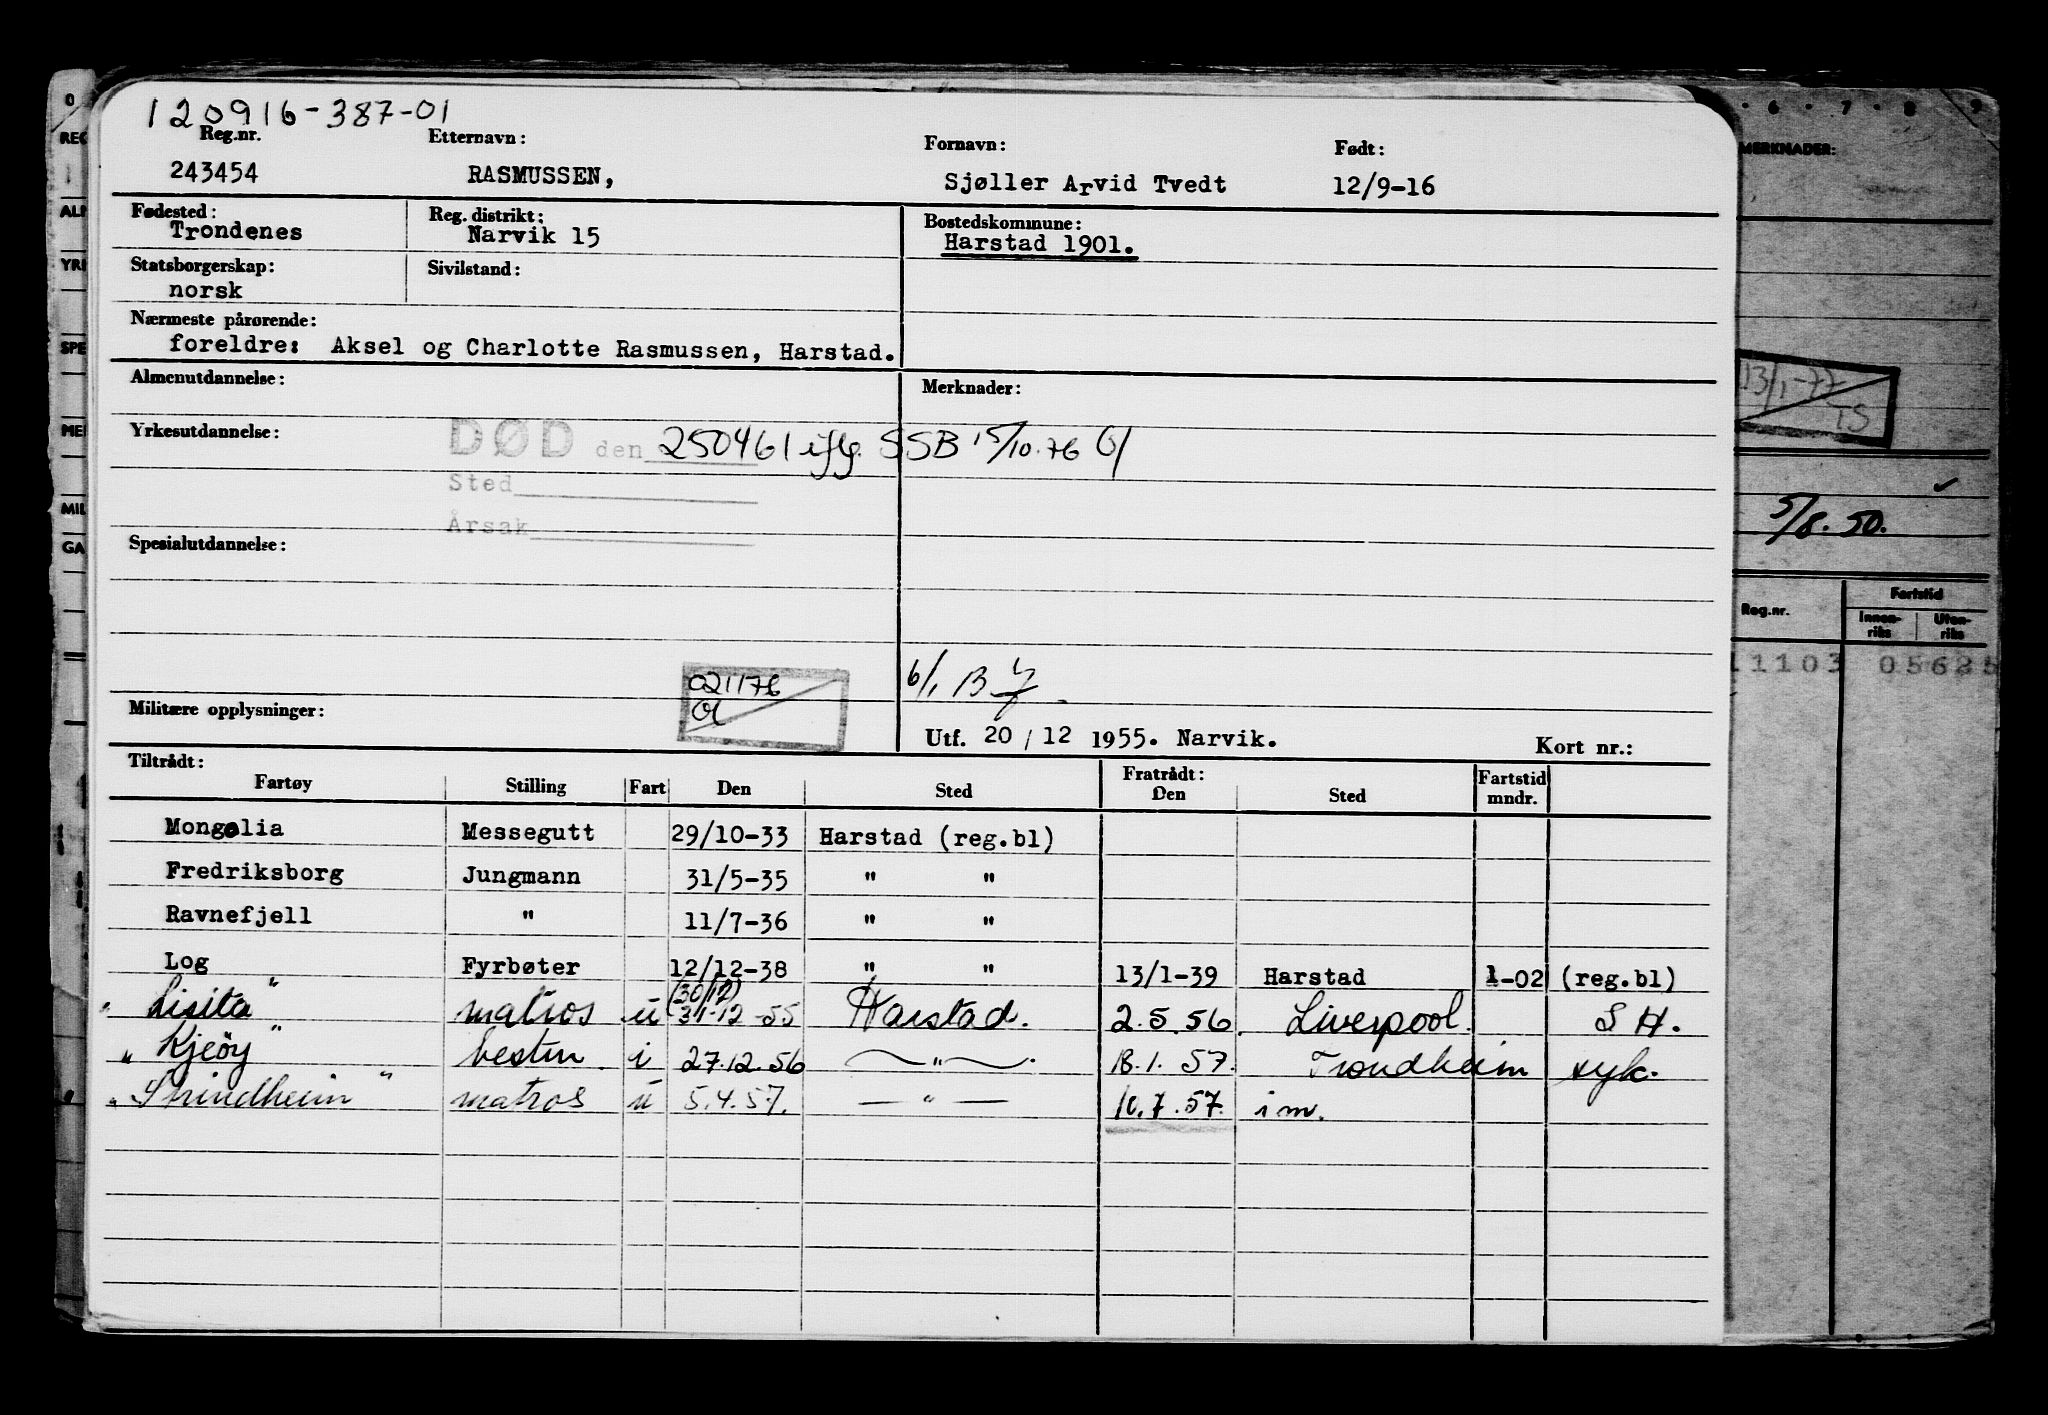 120916-387-01
Reg.nr. Etternavn: Fornavn: Født:
243454 RASMUSSEN, Sjøller Arvid Tvedt 12/9-16
Fødested: Reg. distrikt: Bostedskommune:
Trondenes Narvik 15 Harstad 1901.
Statsborgerskap: Sivilstand:
norsk
Nærmeste pårørende:
foreldre: Aksel og Charlotte Rasmussen, Harstad.
Almenutdannelse: Merknader:
Yrkesutdannelse: DØD den 250461 iflg. SSB 15/10.76
Sted
Årsak
Spesialutdannelse:
021176
6/1 B
Militære opplysninger:
Utf. 20/12 1955. Narvik. Kort nr.:
Tiltrådt: Fratrådt: Fartstid
Fartøy Stilling Fart Den Sted Den Sted mndr.
Mongolia Messegutt 29/10-33 Harstad (reg.bl)
Fredriksborg Jungmann 31/5-35 " "
Ravnefjell " 11/7-36 " "
Log Fyrbøter 12/12-38 " " 13/1-39 Harstad 1-02 (reg.bl)
(30/12)
"Lisita" matros u 31-12-55 Harstad. 2.5.56. Liverpool. S H.
"Kjeøy" bestm i 27.12.56 " 18.1.57. Trondheim syk.
"Strindheim" matros u 5.4.57. — " — 10.7.57. im.
6 7 8 9
MERKNADER:
13/1-77
TS
5/8.50.
Reg.nr. Fartstid
Innen-riks Uten-riks
11103 05625